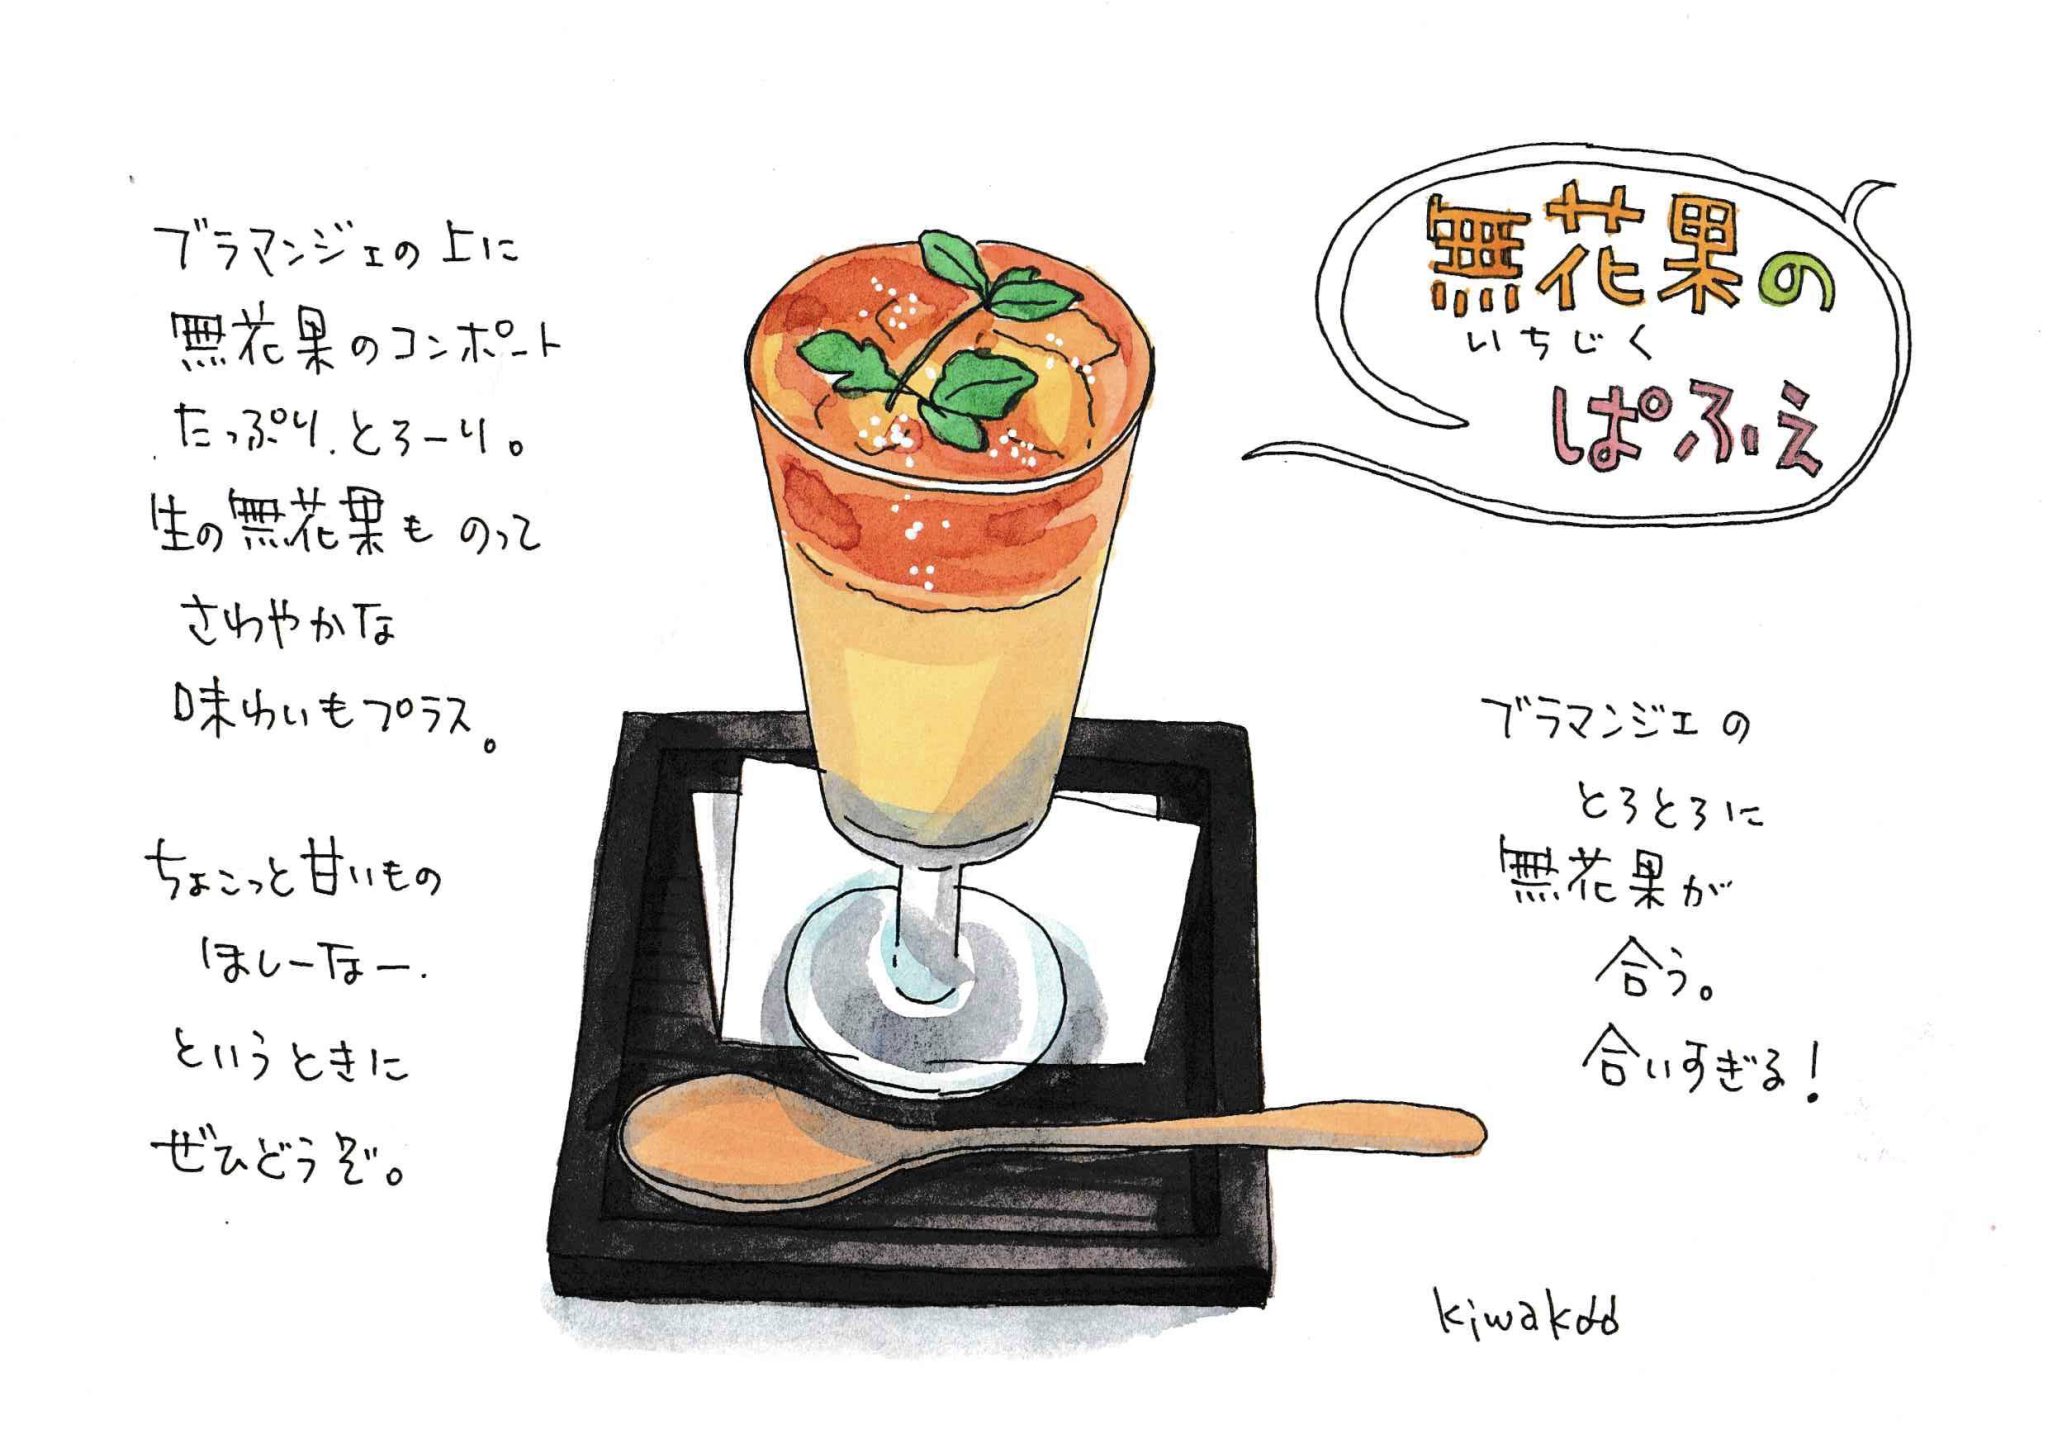 無花果の
いちじく
ぱふぇ
ブラマンジェの上に
無花果のコンポート
たっぷり、とろーり。
生の無花果ものって
さわやかな
味わいもプラス。
ちょこっと甘いもの
ほしーなー、
というときに
ぜひどうぞ。
ブラマンジェの
とろとろに
無花果が
合う。
合いすぎる!
kiwakoo